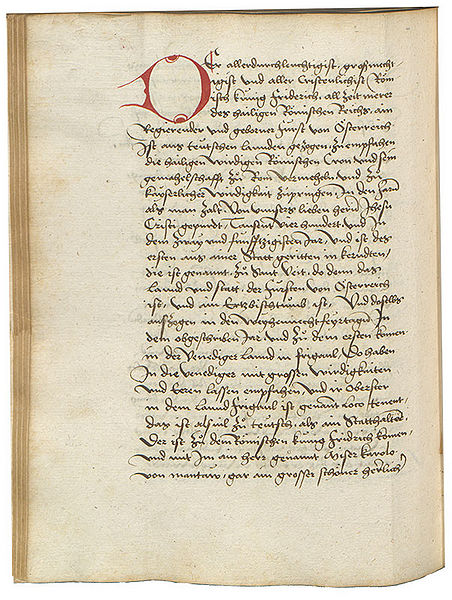 Der allerdurchleuchtigist, großmecht
igist und aller Cristenlichist Röm
isch kunig Friderich, all zeit merer
des heiligen Römischen Reichs, ain
Regierender und geborner Furst von Österreich
Ist aus teutschen landen gezogen, zu empfahen
die hailigen wirdigen Römischen Cron und sein
gemahelschafft zu Rom vermeheln und zu
kayserlicher wirdigkeit zu In den Jarn
als man zalt von unsers lieben hern Jhesu
Cristi gepurdt, Tausent vier hundert, und In
dem zway und funfftzigisten Jar, und ist des
ersten aus ainer Stat geritten in kerndten,
die ist genannt, zu Sant Veit, do denn das
Lannd und statt, der fursten von Österreich
ist, und ain Ertzbischtumb ist, Und doselbs
auszogen in den weyhennecht feyrtagen In
dem obgeschriben Jar, und zu dem ersten komen
in der Venediger Land in frigaul, Do haben
In die Venediger mit grossen wirdigkaiten
und Eeren lassen empfahen, und ir Oberster
in dem Lannd Frigaul ist genant Loco tenent
das ist alsvil zu teutsch, als ain Statthalter
Der ist zu dem Römischen kunig Fridrich komen,
und mit Im ain herr genannt Miser karolo
von mantaw, gar ain grosser schöner herrlich